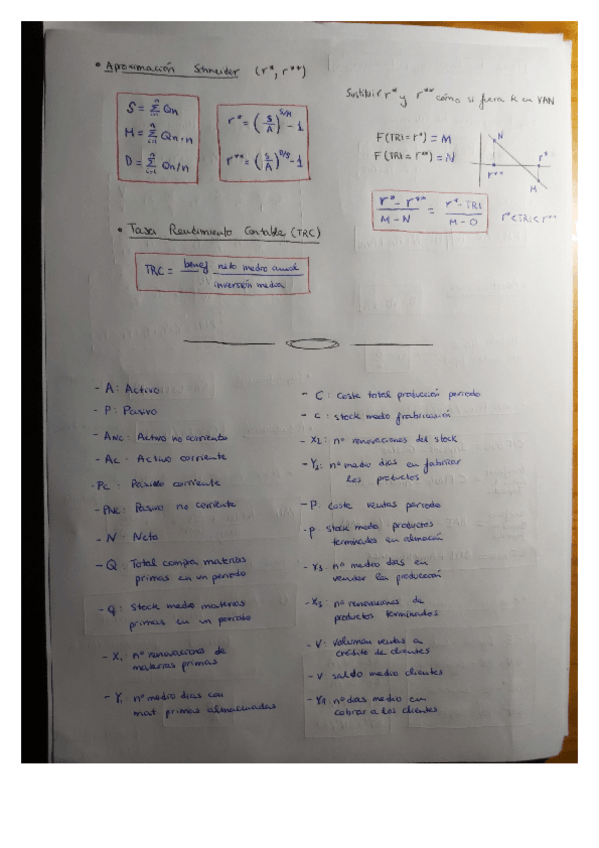 • Aproximación Schneider (r*, r**)
S = Σ Qn
M = Σ Qn·n
D = Σ Qn/n
r* = (S/A)^S/M - 1
r** = (S/A)^D/S - 1
Sustituir r* y r** cómo si fuera k en VAN
F(TRI = r*) = M
F(TRI = r**) = N
N
r*
r**
M
r* - r** / M - N = r* - TRI / M - 0
r* < TRI < r**
• Tasa Rendimiento Contable (TRC)
TRC = benef neto medio anual / inversión media
- A: Activo
- P: Pasivo
- ANC: Activo no corriente
- AC - Activo corriente
- PC: Pasivo corriente
- PNC: Pasivo no corriente
- N: Neto
- Q: Total compra materias
primas en un periodo
- q: Stock medio materias
primas en un periodo
- X1 nº renovaciones de
materias primas
- Y1 nº medio dias con
mat primas almacenadas
- C: coste total producción periodo
- c: stock medio frabricación
- X2: nº renovaciones del stock
- Y2: nº medio dias en fabricar
los productos
- P: coste ventas periodo
- p stock medio productos
terminados en almacén
- Y3 nº medio dias en
vender la producción
- X3: nº renovaciones de
productos terminados
- V: volumen ventas a
crédito de clientes
- v saldo medio clientes
- Y4 nº dias medio en
cobrar a los clientes